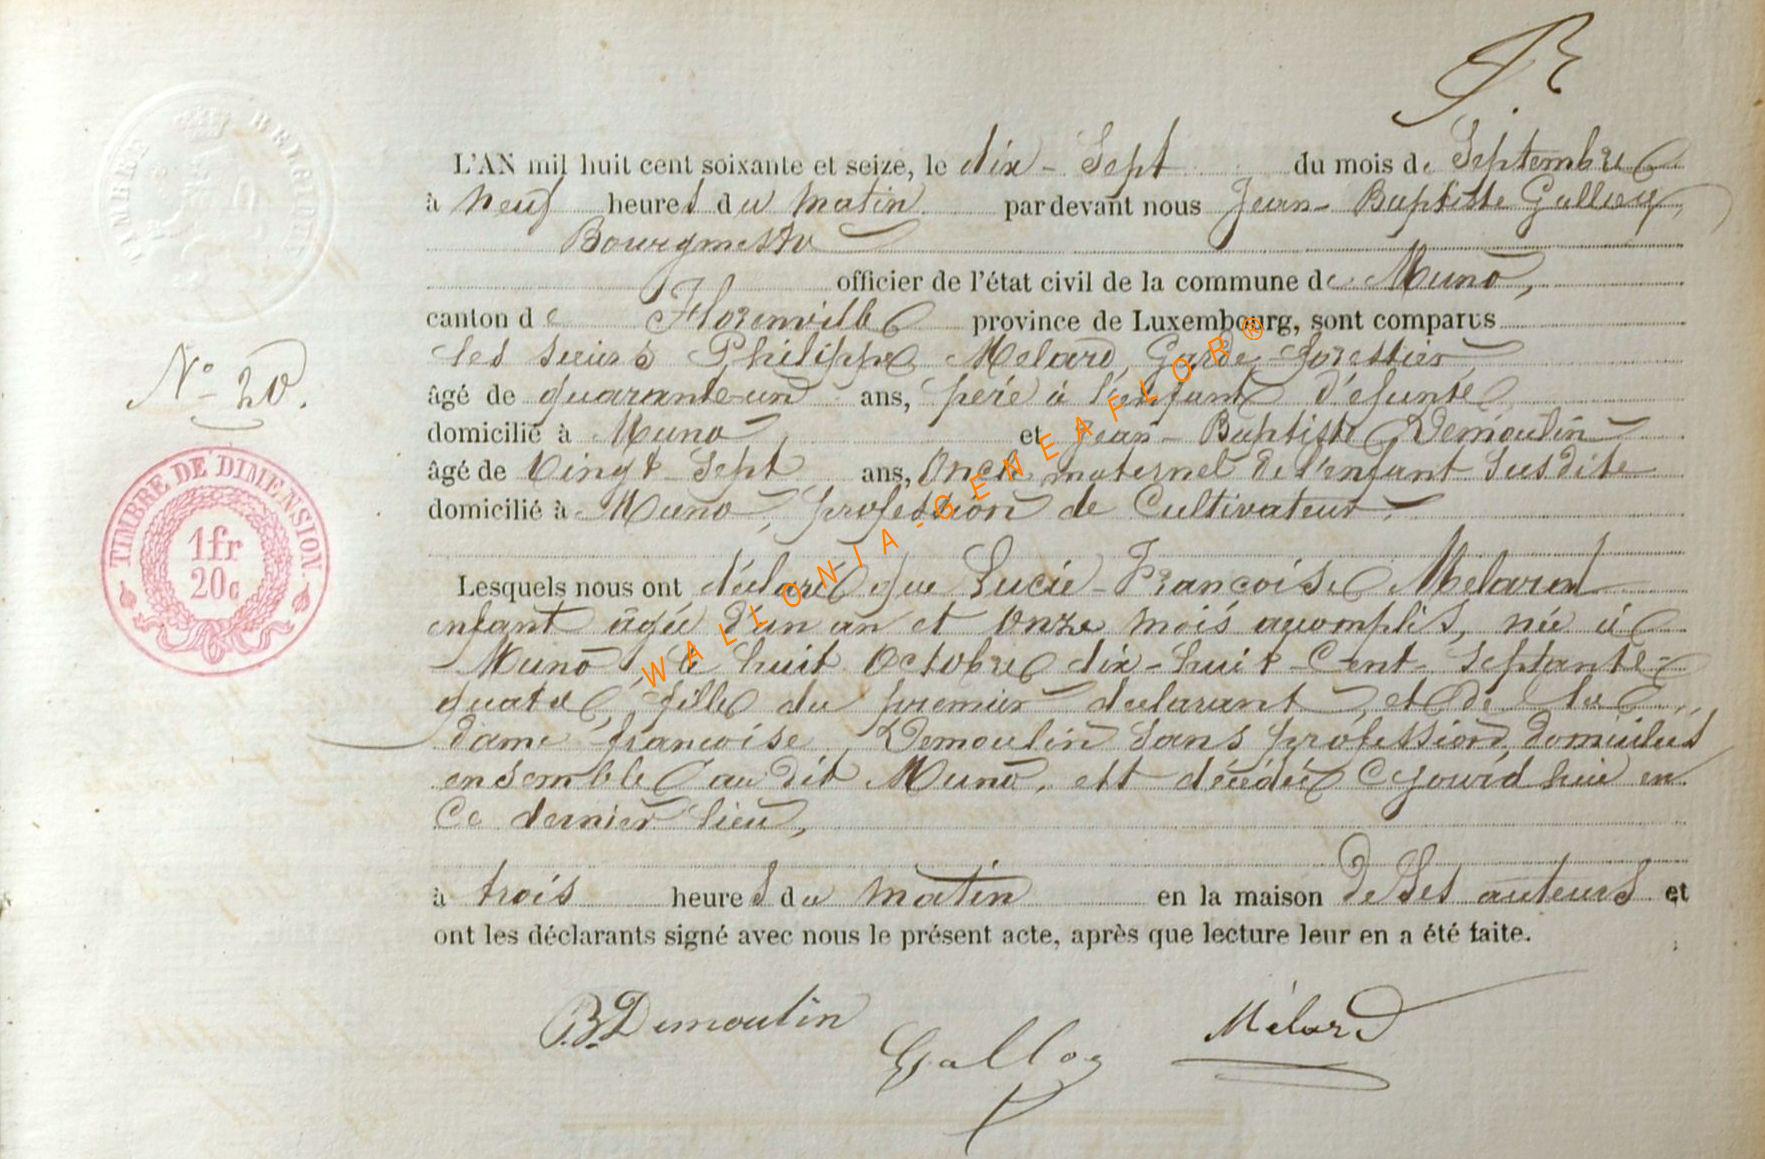 TIMBRE BELGIQUE
L'AN mil huit cent soixante et seize, le dix-Sept du mois de Septembre
à neuf heures du matin par devant nous Jean-Baptiste
Bourgmestre
officier de l'état civil de la commune de Muno,
canton de Florenville province de Luxembourg, sont comparus
les sieurs Philippe Melard, Garde-forestier
âgé de quarante-un ans, père à l'enfant défunte
domicilié à Muno, et Jean-Baptiste Demoulin
âgé de Vingt Sept ans, Oncle maternel de l'enfant Susdite
domicilié à Muno, profession de Cultivateur.
Lesquels nous ont déclaré que Lucie-Francoise Melard
enfant âgée d'un an et Onze mois accomplis, née à
Muno, le huit Octobre dix-huit-Cent-Septante-
quatre, fille du premier déclarant, et de la
dame françoise Demoulin Sans profession, domiciliés
ensemble au dit Muno, est décédée Cejourd'hui en
Ce dernier lieu,
à trois heures du matin en la maison de Ses auteurs et
ont les déclarants signé avec nous le présent acte, après que lecture leur en a été faite.
N° 20.
TIMBRE DE DIMENSION
1fr
20c
B. Demoulin
Mélard
WALLONIA-GENEAFLOR®